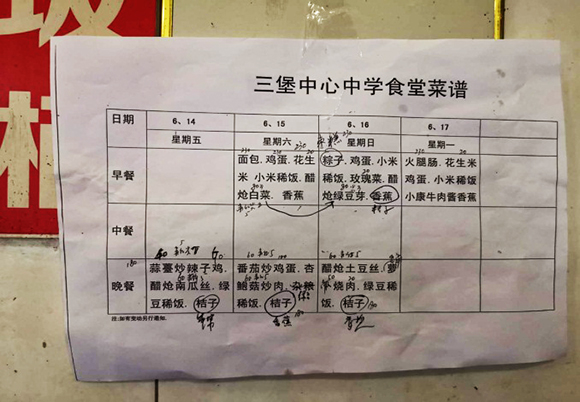 三堡中心中学食堂菜谱
日期
6、14
星期五
6、15
星期六
6、16
星期日
6、17
星期一
早餐
面包.鸡蛋.花生
米.小米稀饭.醋
炝白菜.香蕉
粽子.鸡蛋.小米
稀饭.玫瑰菜.醋
炝绿豆芽.香蕉
火腿肠.花生米
鸡蛋.小米稀饭
小康牛肉酱香蕉
中餐
晚餐
蒜薹炒辣子鸡.
醋炝南瓜丝.绿
豆稀饭.桔子
番茄炒鸡蛋.杏
鲍菇炒肉.杂粮
稀饭.桔子
香蕉
醋炝土豆丝.萝
卜烧肉.绿豆稀
饭.桔子
注:如有变动另行通知.